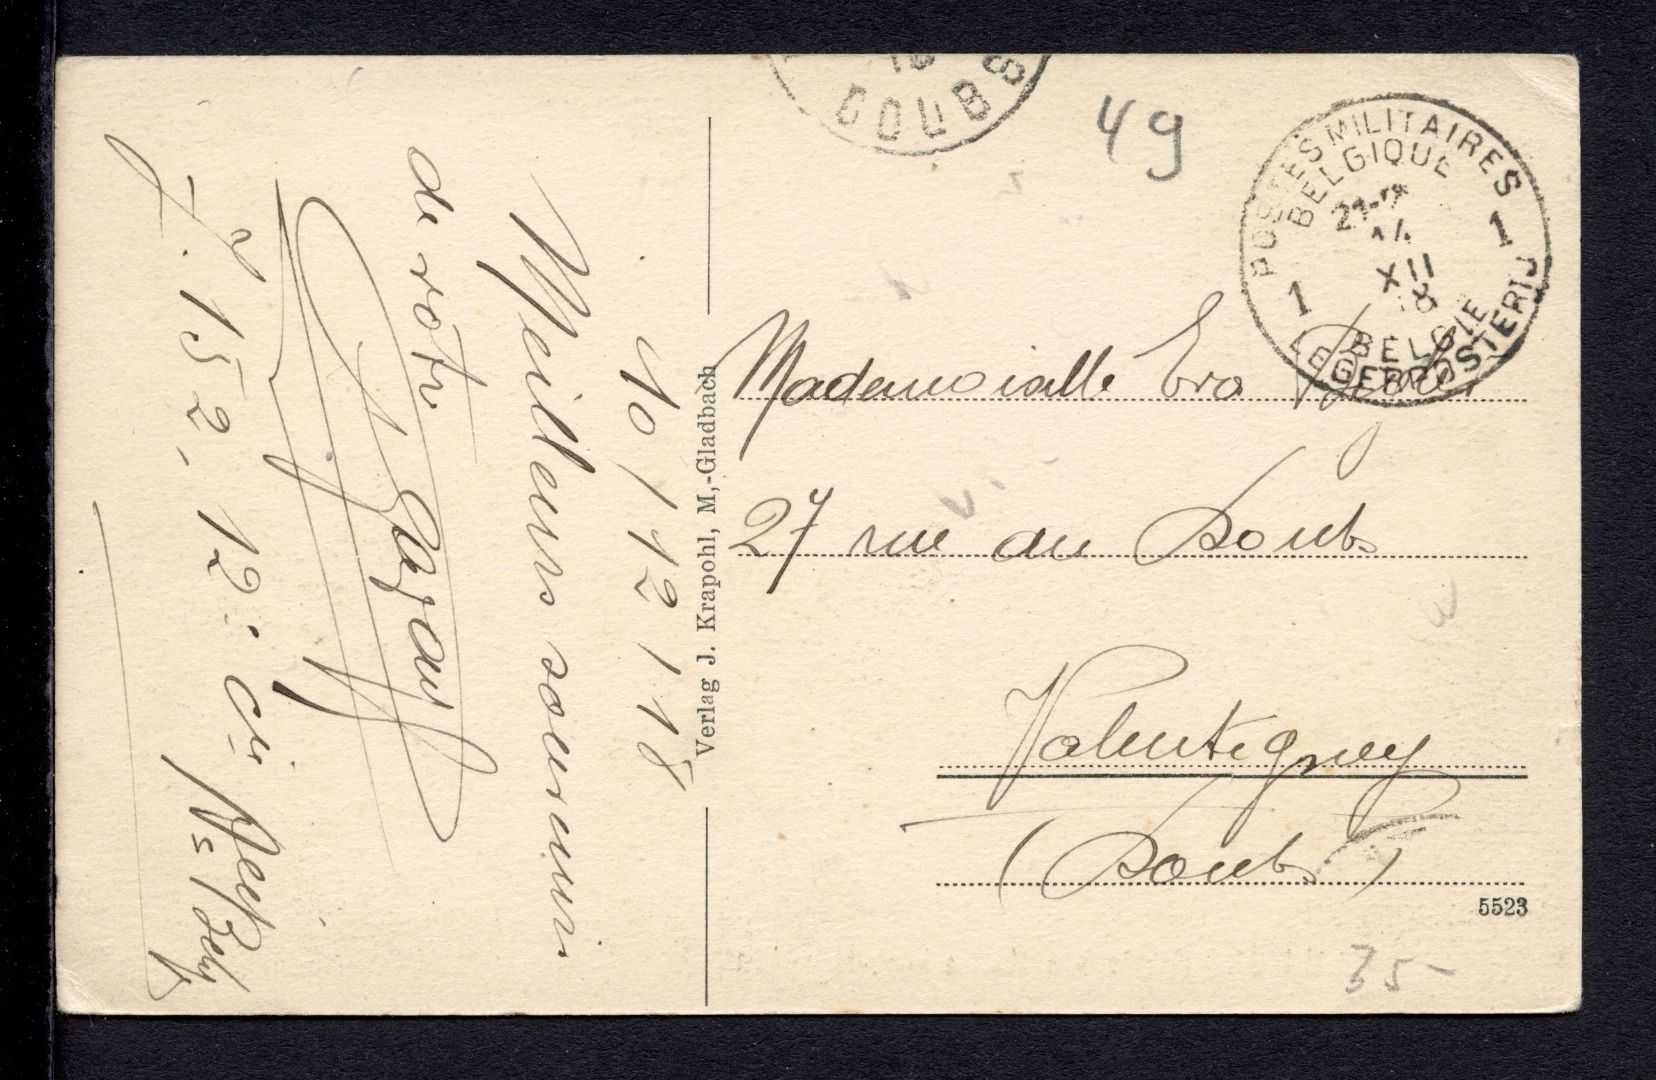 10/12/18
Meilleurs souvenirs
de votre
J. 152, 12: Cie
Verlag J. Krapohl, M,-Gladbach
DOUBS
49
POSTES MILITAIRES
BELGIQUE
1 1
XII
18
BELGIE
LEGERPOSTERIJ
Mademoiselle Eva
27 rue du Doubs
Valentigney
(Doubs)
5523
35-